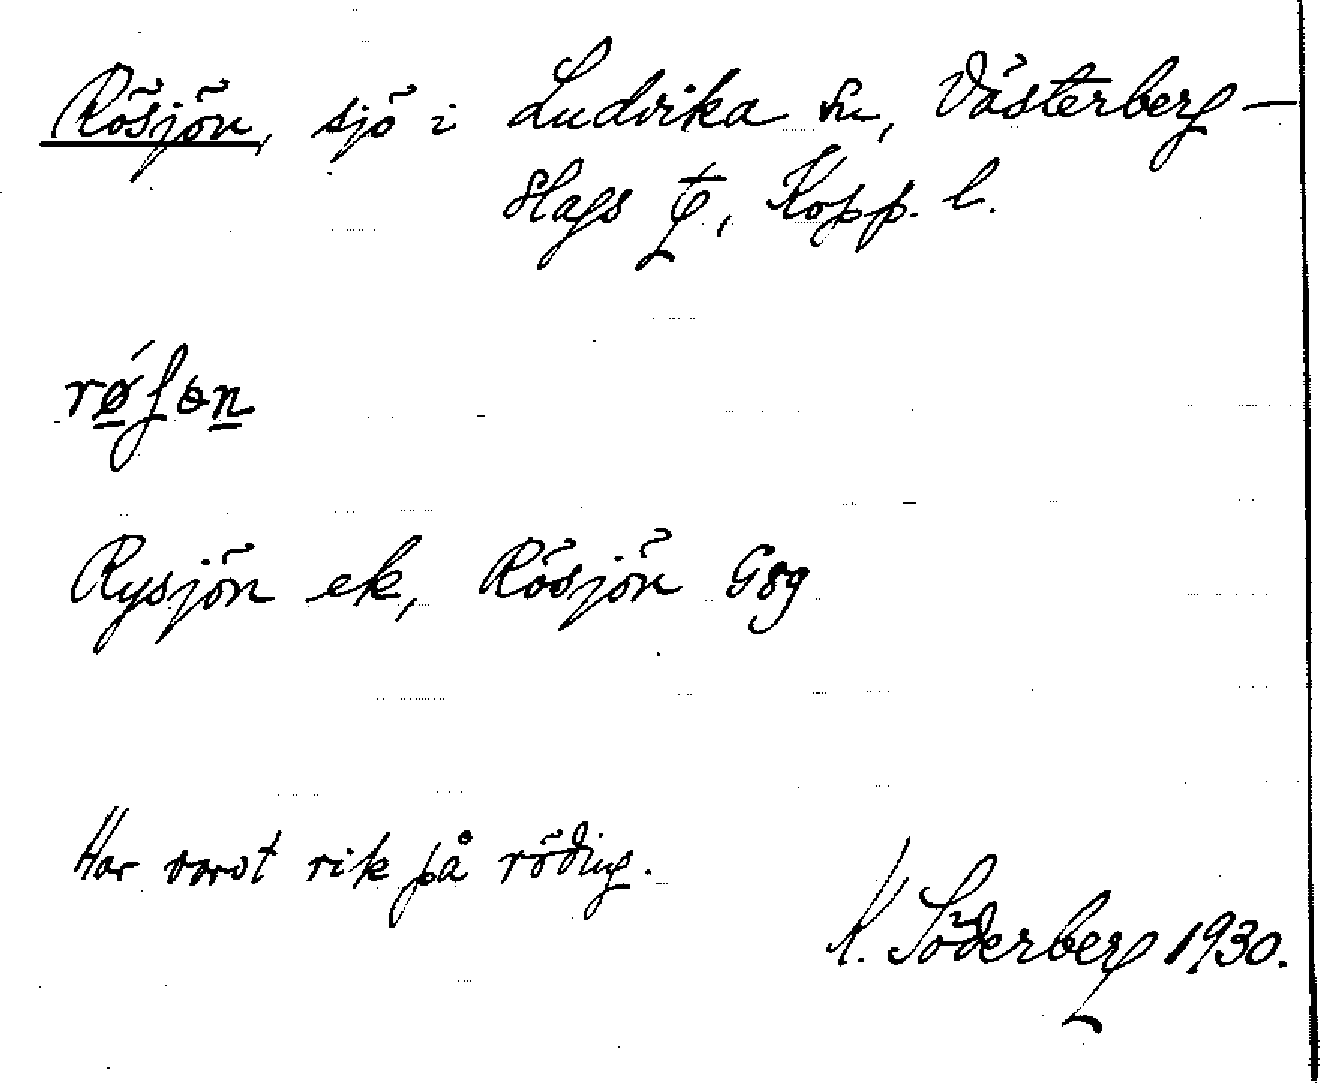 Rösjön, sjö i Ludvika sn, Västerberg-
slags t, Kopp. l.
røʃən
Rysjön ek, Rösjön G89
Har varit rik på röding.
K. Söderberg 1930.